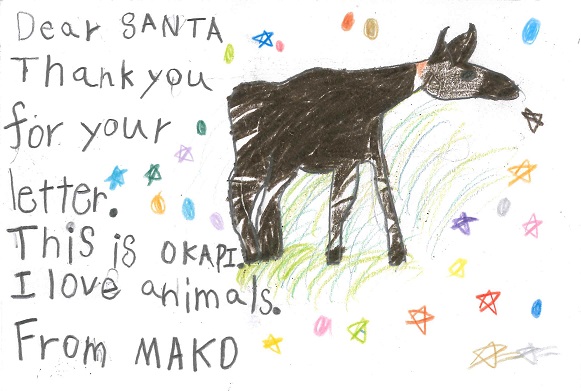 Dear SANTA
Thank you
for your
letter.
This is OKAPI.
I love animals.
From MAKO